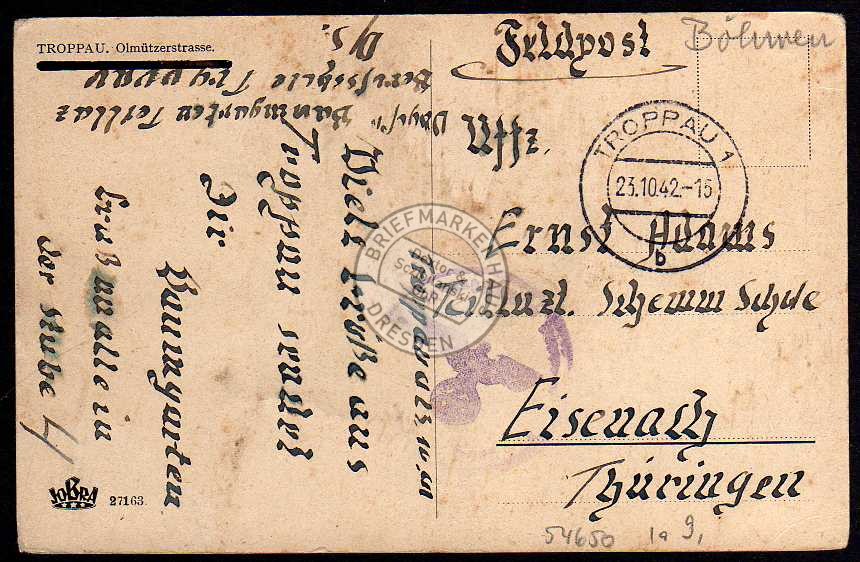 TROPPAU. Olmützerstrasse.
Baumgarten
Troppau
Troppau d 23.10.
Viele Grüße aus
Troppau sendet
Dir
Baumgarten
Gruß an alle in
der Stube 4
JOBRA
27163.
Feldpost
Böhmen
Uffz.
TROPPAU 1
23.10.42.-15
b
Ernst Adams
Eisenach
Thüringen
54650 1a 9,
BRIEFMARKENHAUS
DRESDEN